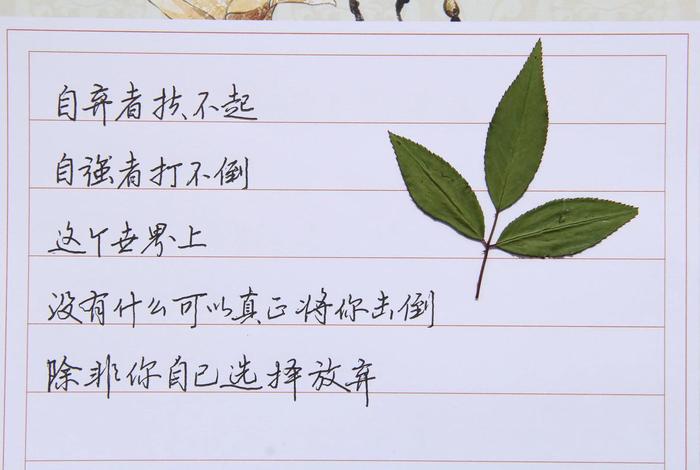 自弃者扶不起
自强者打不倒
这个世界上
没有什么可以真正将你击倒
除非你自己选择放弃